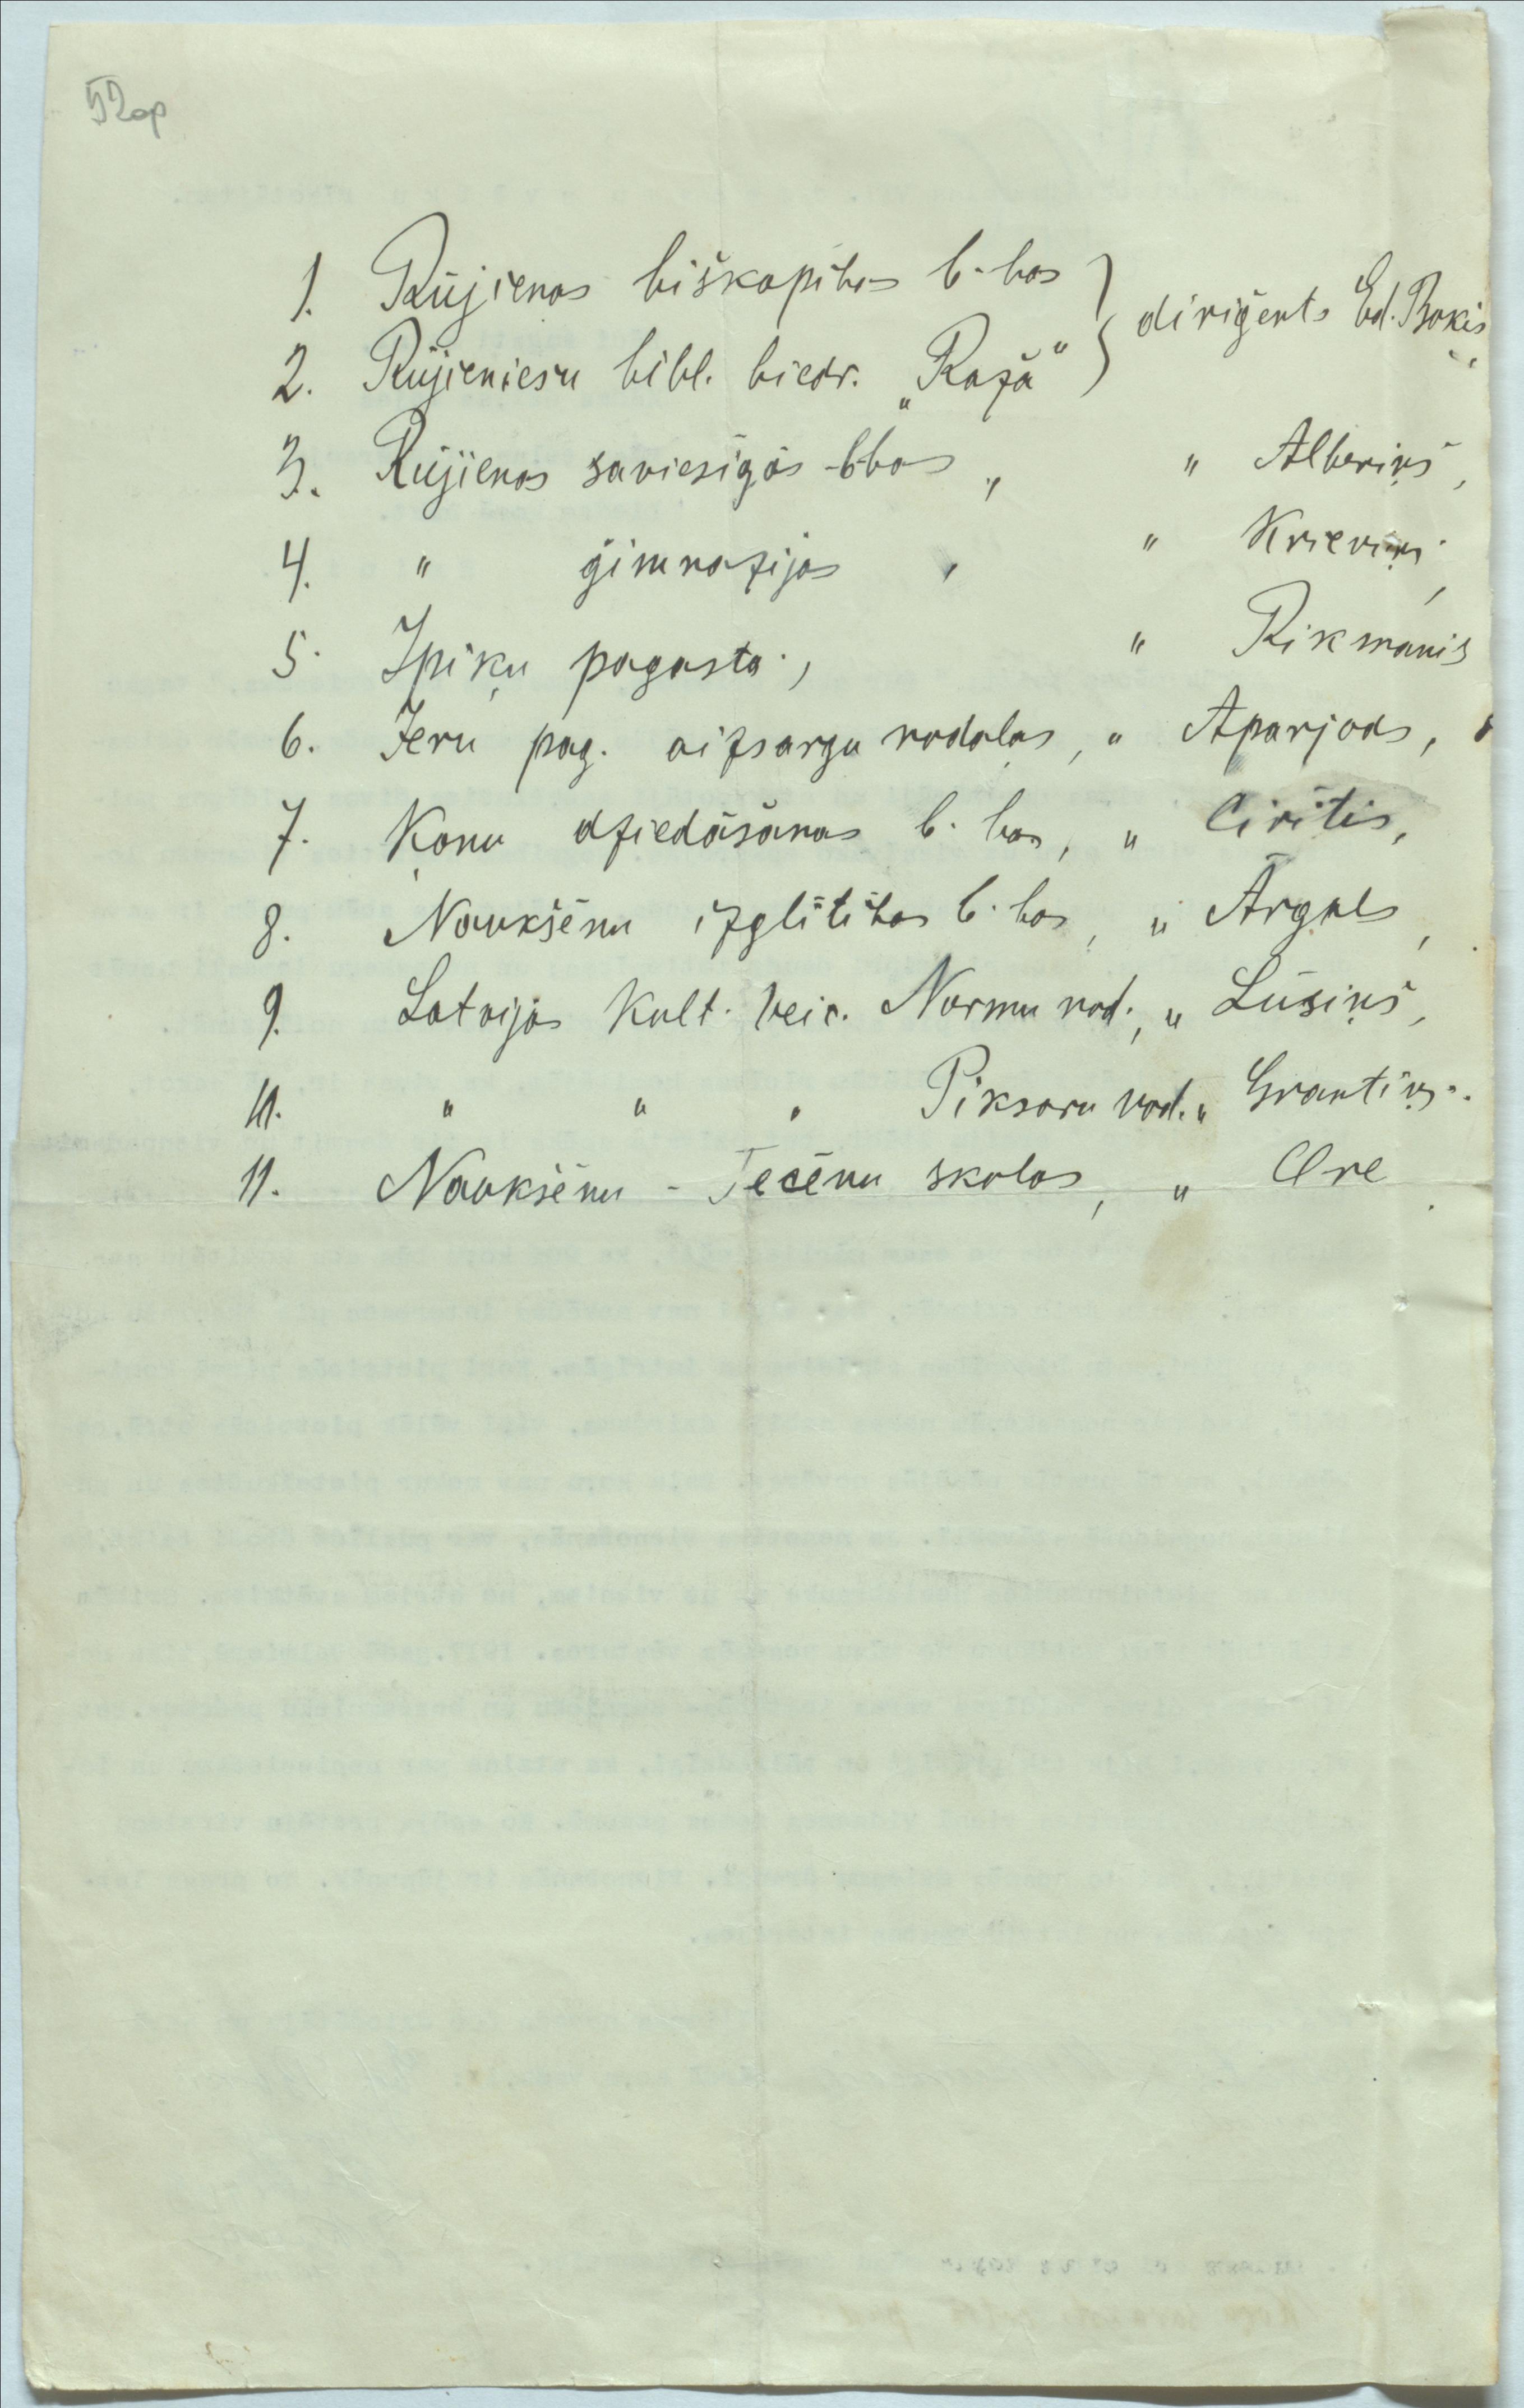 52op
1. Rūjienas biškopības b-bas } diriģents Ed. Bokis,
2. Rūjieniešu bibl. biedr. „Raža" }
3. Rūjienas saviesīgās b-bas, " Alberiņš,
4. " ģimnāzijas, " Krieviņš,
5. Ipiķu pagasta, " Rikmanis
6. Jeru pag. aizsargu nodaļas, " Aparjods,
7. Ķoņu dziedāšanas b. bas, " Cirītis,
8. Naukšēnu izglītības b. bas, " Ārgals,
9. Latvijas Kult. veic. Nurmu nod., " Lūsiņš,
11. " " " Piksaru nod. " Grantiņš.
11. Naukšēnu - Tecēnu skolas, " Ore.